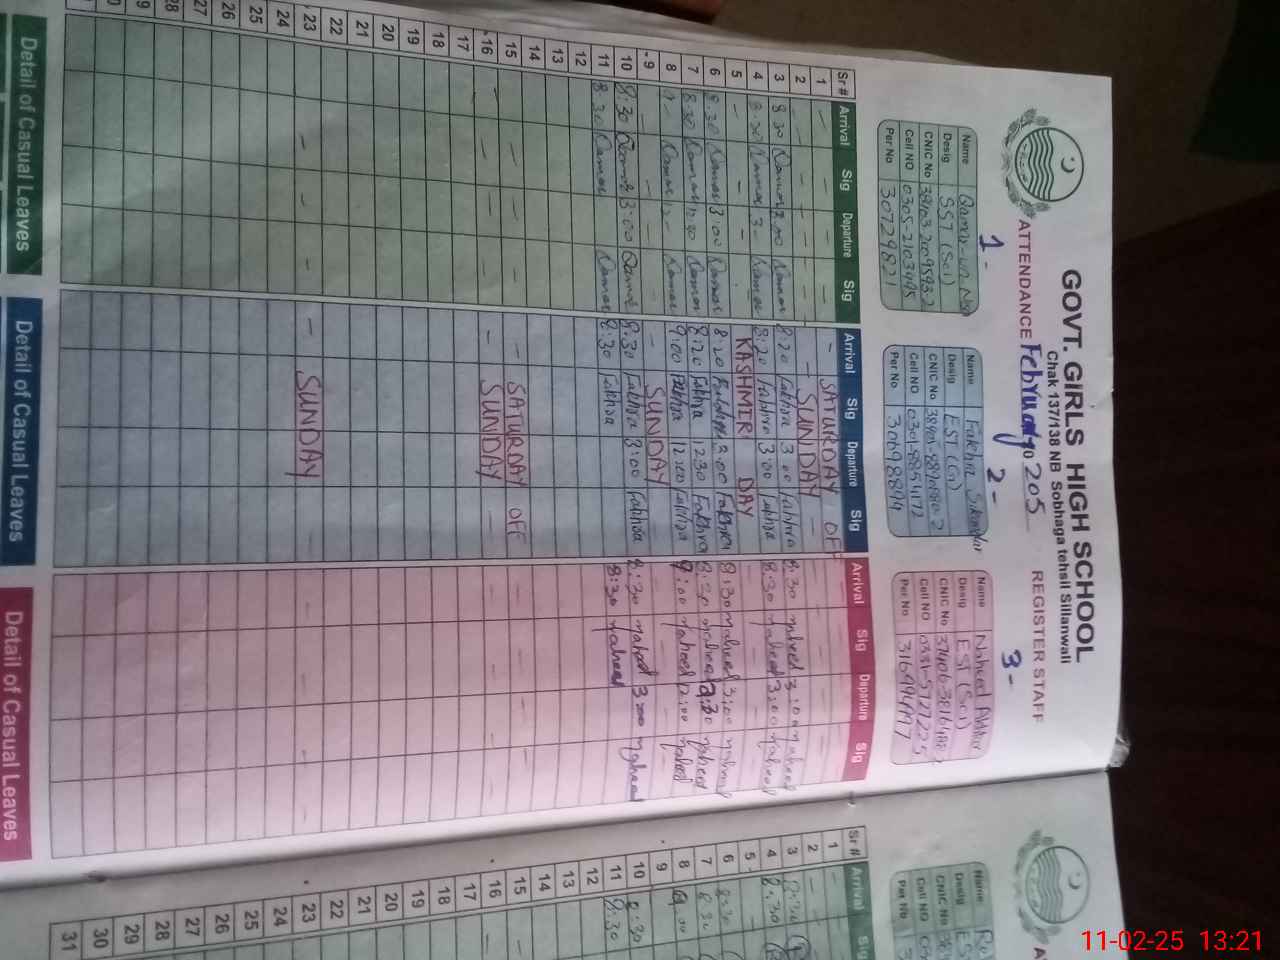 GOVT. GIRLS HIGH SCHOOL
Chak 137/138 NB Sobhaga tehsil Sillanwali
ATTENDANCE February 2025 REGISTER STAFF
1-
Name
Desig SST (Sci)
CNIC No
Cell NO 0305-2103495
Per No 30729821
2-
Name Fakhra Sikandar
Desig EST (G)
CNIC No
Cell NO 0301-8854172
Per No 30698894
3-
Name Naheed Akhtar
Desig EST (Sci)
CNIC No
Cell NO
Per No 31649497
Sr # Arrival Sig Departure Sig Arrival Sig Departure Sig Arrival Sig Departure Sig
1 - - - - - SATURDAY OFF - - - -
2 - - - - - SUNDAY - - - - -
3 8:30 Qamar 3:00 Qamar 8:20 Fakhra 3:00 Fakhra 8:30 naheed 3:00 naheed
4 8:30 Qamar 3- Qamar 8:20 Fakhra 3:00 Fakhra 8:30 naheed 3:00 naheed
5 - - - - KASHMIR DAY
6 8:30 Qamar 3:00 Qamar 8:20 Fakhra 3:00 Fakhra 8:30 naheed 3:00 naheed
7 8:30 Qamar 12:30 Qamar 8:20 Fakhra 12:30 Fakhra 8:30 naheed 12:30 naheed
8 9- Qamar 12- Qamar 9:00 Fakhra 12:00 Fakhra 9:00 naheed 12:00 naheed
9 - - - - - SUNDAY - - - - -
10 8:30 Qamar 3:00 Qamar 8:30 Fakhra 3:00 Fakhra 8:30 naheed 3:00 naheed
11 8:30 Qamar Qamar 8:30 Fakhra 8:30 naheed
12
13
14
15 - - - - - SATURDAY OFF - - - -
16 - - - - - SUNDAY - - - - -
17
18
19
20
21
22
23 - - - - SUNDAY - - - -
24
25
26
27
28
Detail of Casual Leaves Detail of Casual Leaves Detail of Casual Leaves
Name
Desig
CNIC No
Cell NO
Per No
Sr # Arrival Sig
1 -
2 -
3 8:30
4 8:30
5 -
6 8:30
7 8:30
8 9:00
9
10 8:30
11 8:30
12
13
14
15 -
16 -
17
18
19
20
21
22
23
24
25
26
27
28
29
30
31
11-02-25 13:21